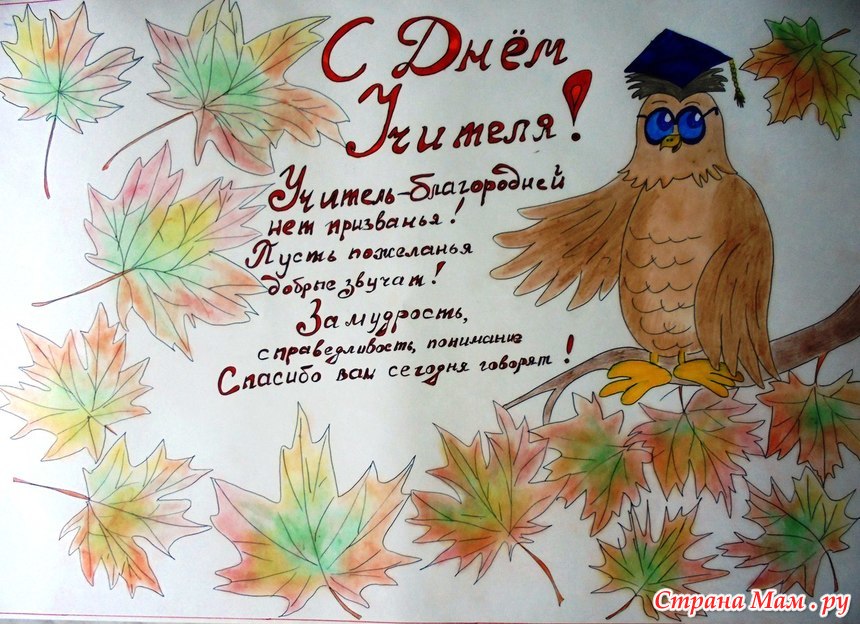 С Днём
Учителя!
Учитель-благородней
нет призванья!
Пусть пожеланья
добрые звучат!
За мудрость,
справедливость, понимание
Спасибо вам сегодня говорят!
Страна Мам.ру